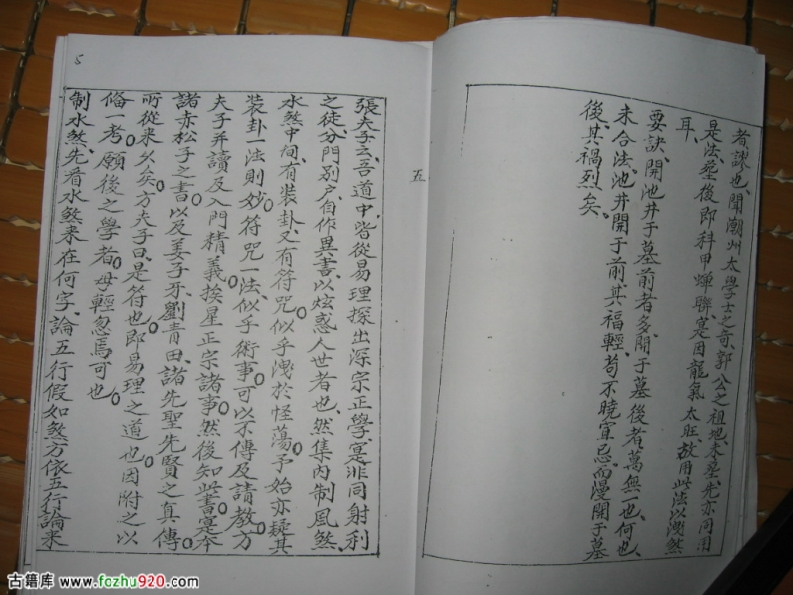 者謬也、聞潮州太學士之奇、郭公之祖地、未塟先亦同用
是法、塟後即科甲蟬聯、寔因龍氣太旺、故用此法以洩然
耳、
要訣、開池井于墓前者多、開于墓後者、萬無一也、何也、
未合法、池井開于前、其福輕、苟不曉宜忌、而漫開于墓
後、其禍烈矣。
五
5
張夫子云、吾道中、皆從易理探出深宗正學、寔非同射利
之徒、分門別户、自作異書、以炫惑人世者也、然集内制風煞、
水煞中间、有装卦、又有符咒。似乎洩於怪蕩。予始亦疑其
装卦一法則妙、符咒一法、似乎術事。可以不傳、及請教方
夫子、并讀及入門精義。挨星正宗諸事、然後知此書寔本
諸赤松子之書。以及姜子牙、劉青田、諸先聖先賢之真傳。
所從来久矣。方夫子曰、是符也、即易理之道也。因附之以
俻一考。願後之學者。毋輕忽焉可也。
制水煞、先看水煞来在何字、論五行、假如煞方依五行論来
古籍库 www.fozhu920.com